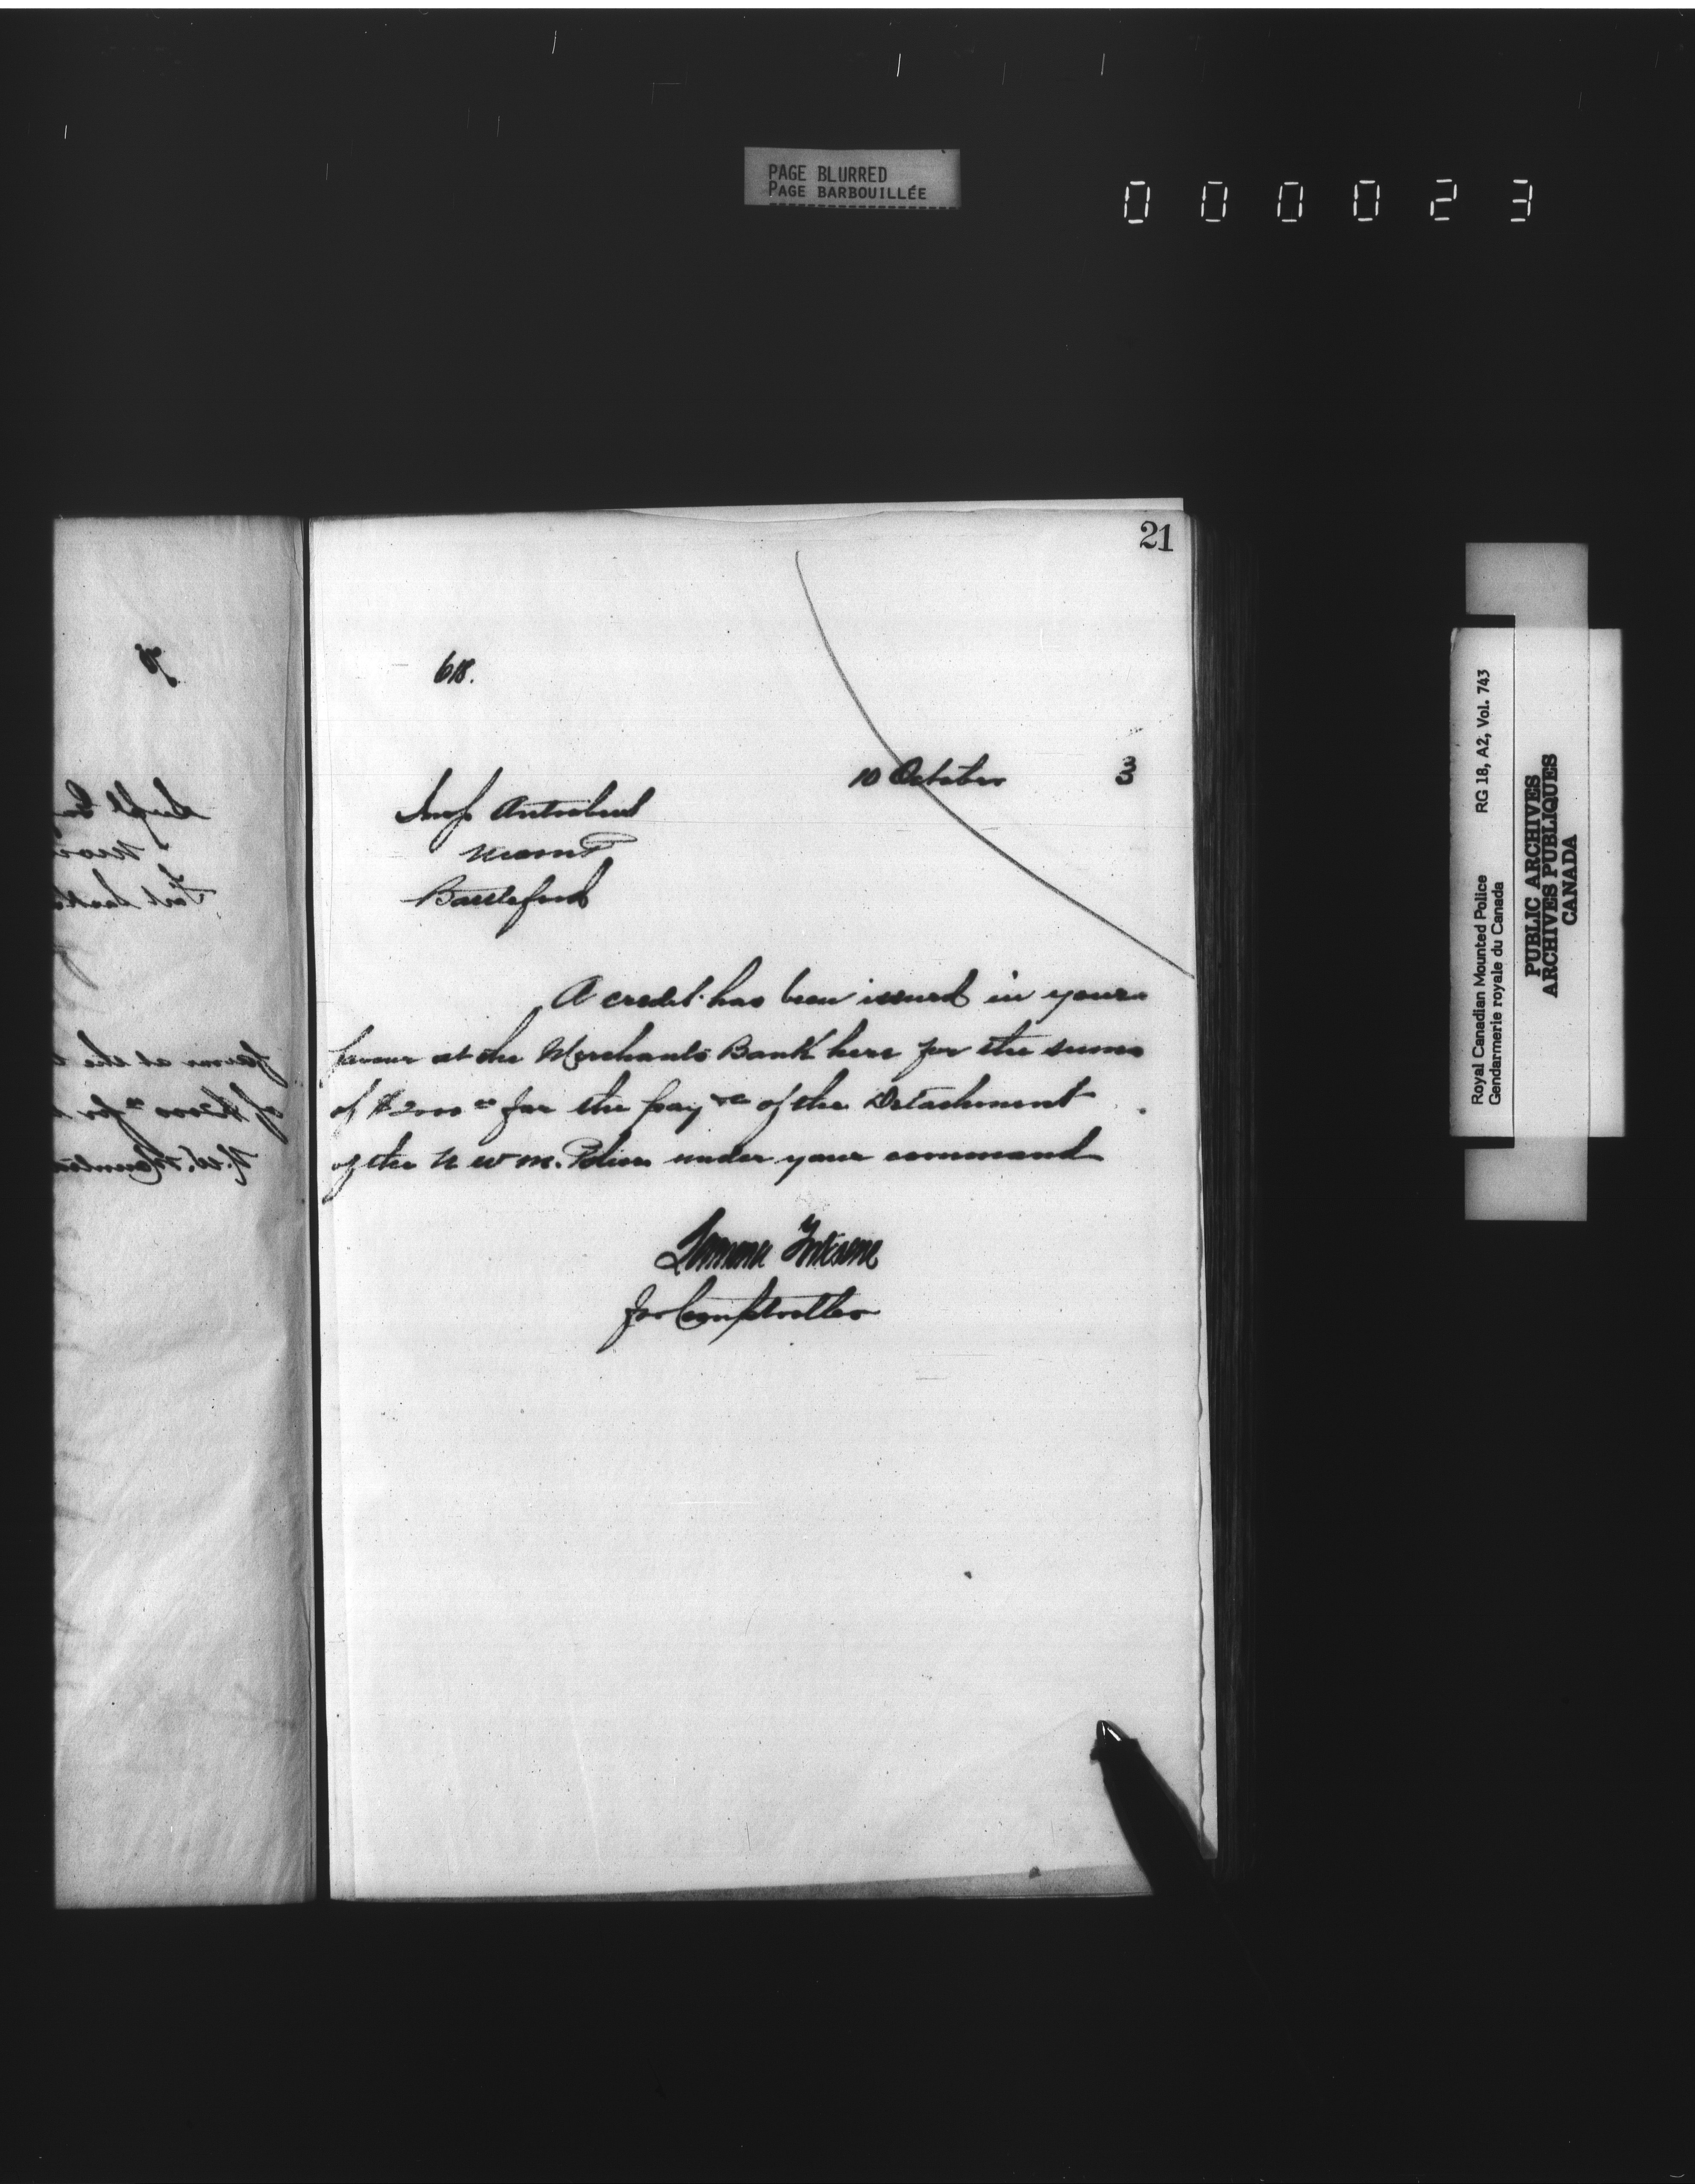 PAGE BLURRED
PAGE BARBOUILLÉE
000023
21
618.
10 October 3
Insp Antrobus
NWMP
Battleford
A credit has been issued in your
favour at the Merchants Bank here for the sum
of $2000 00 for the pay &c of the Detachment
of the N W M. Police under your command
for Comptroller
Royal Canadian Mounted Police RG 18, A2, Vol. 743
Gendarmerie royale du Canada
PUBLIC ARCHIVES
ARCHIVES PUBLIQUES
CANADA